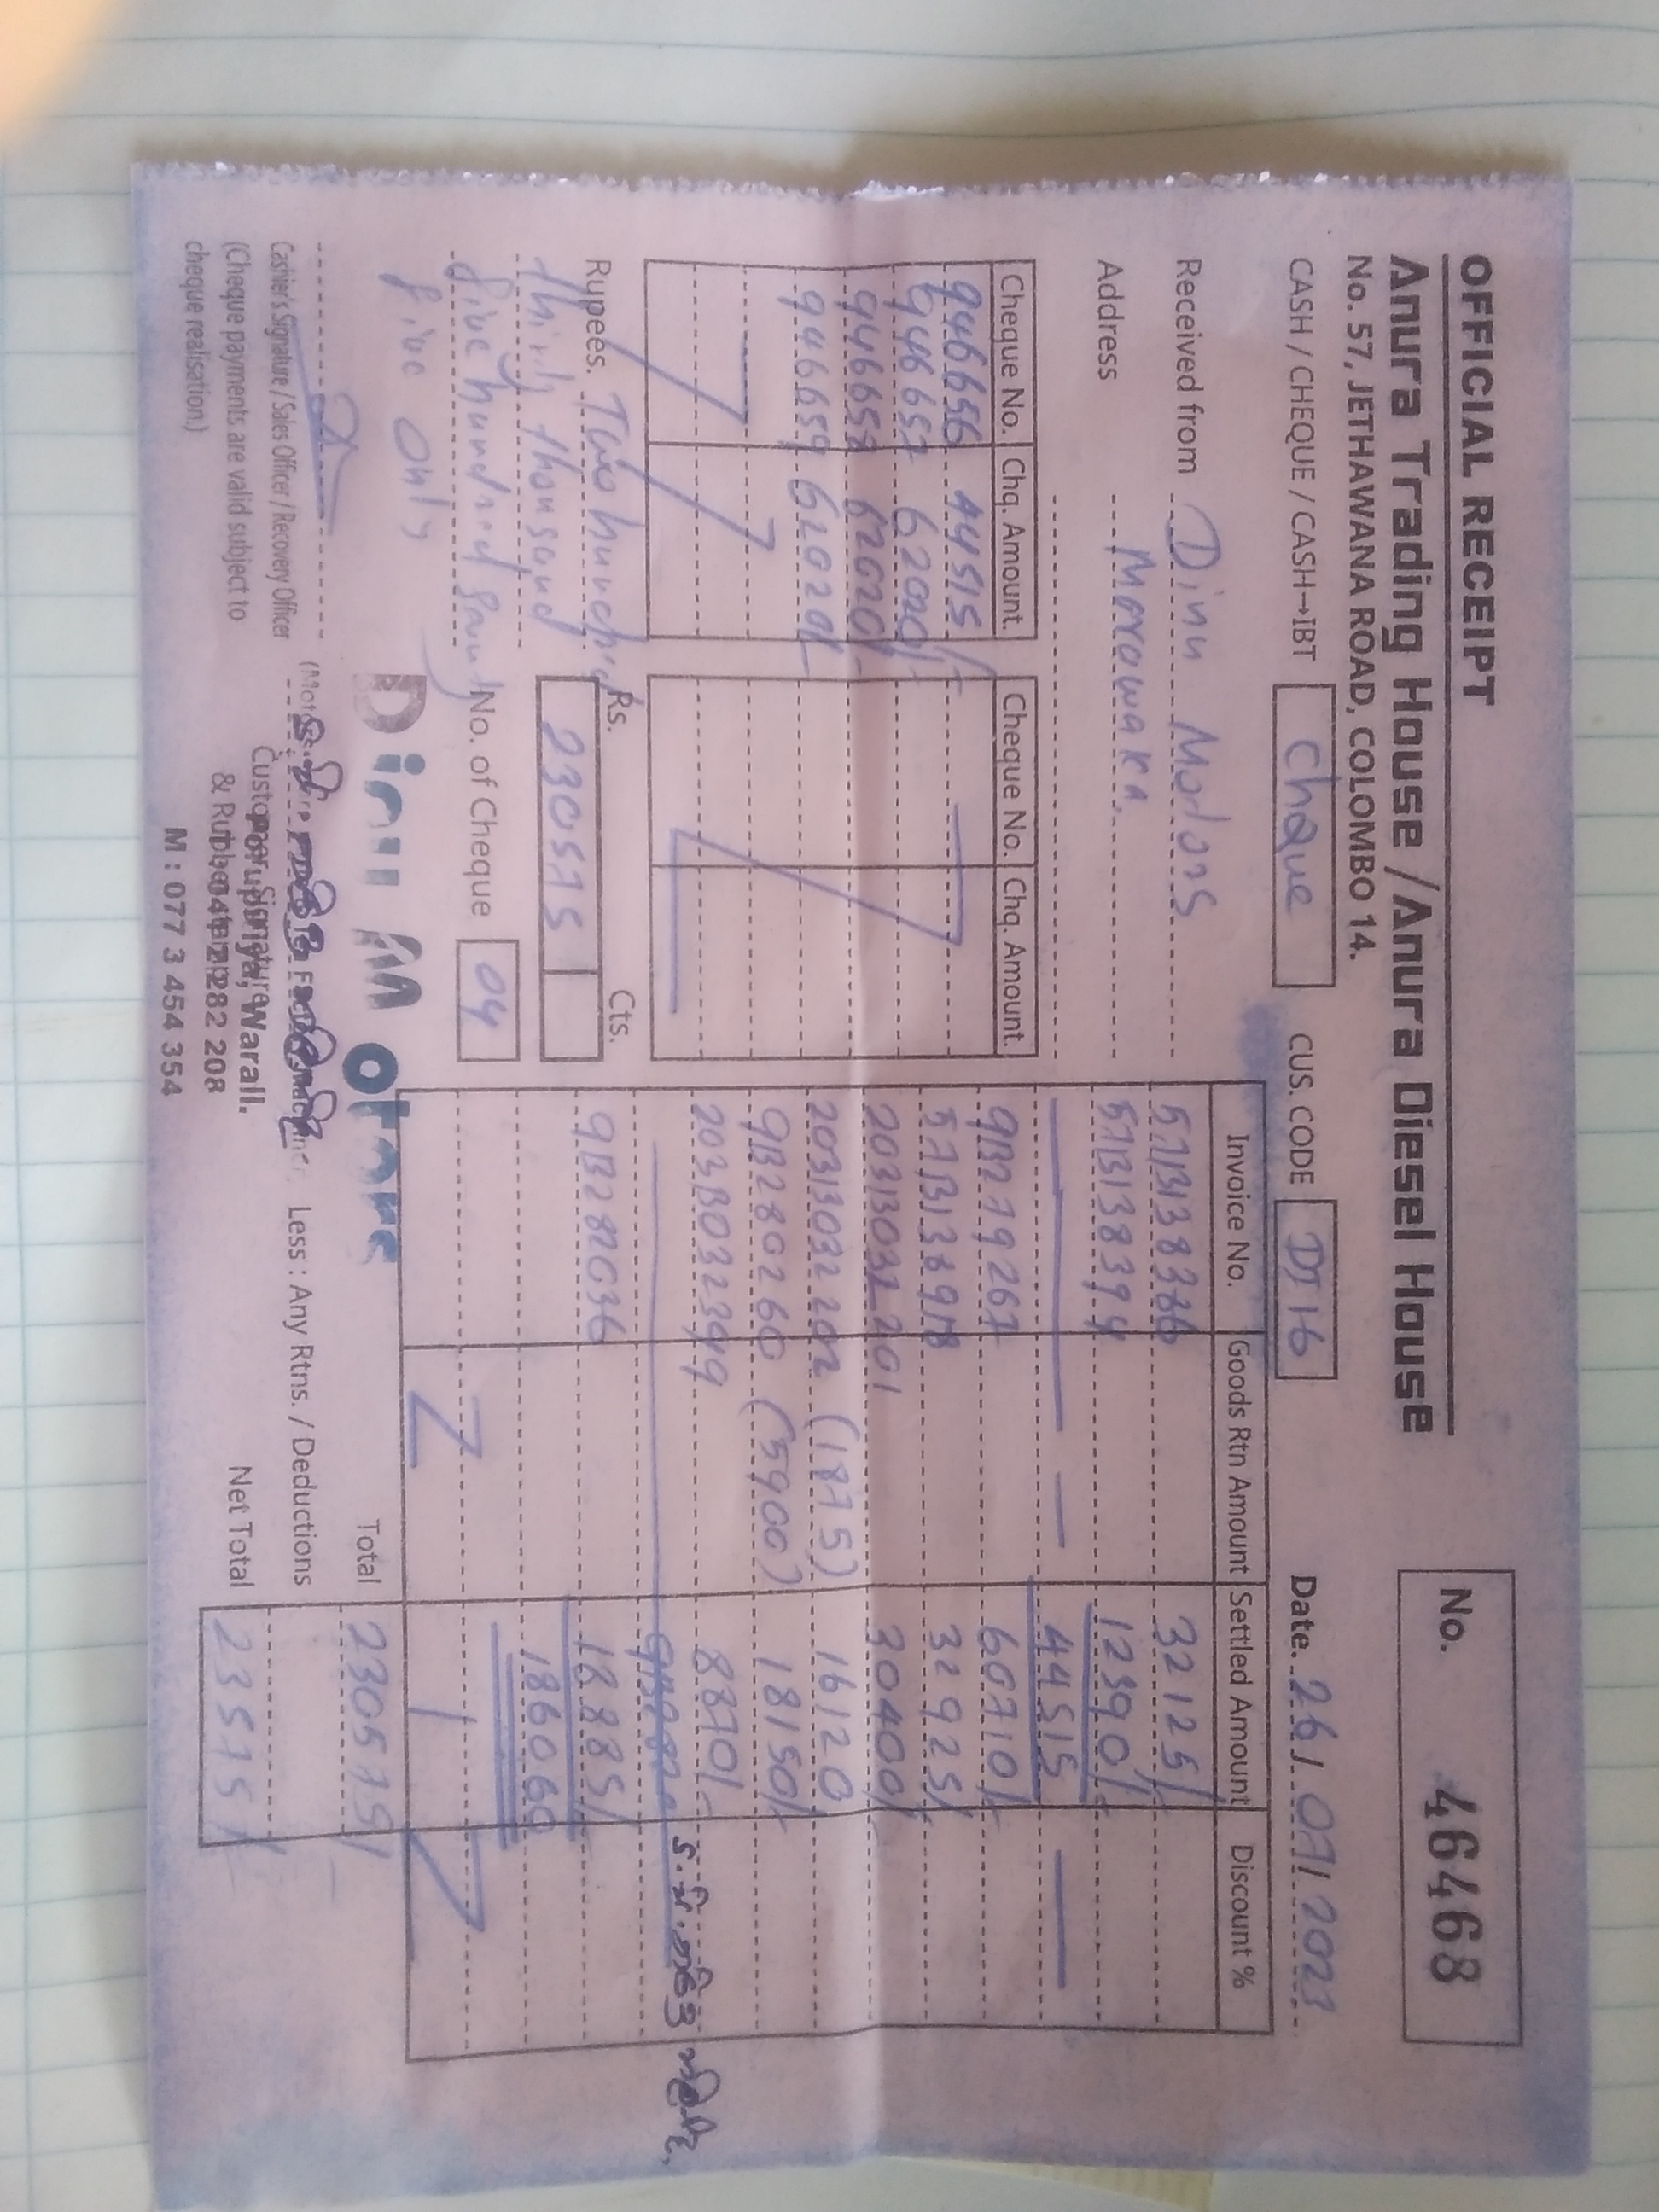 OFFICIAL RECEIPT
No. 46468
Anura Trading House / Anura Diesel House
No. 57, JETHAWANA ROAD, COLOMBO 14.
CASH / CHEQUE / CASH→IBT Chque CUS. CODE DI16 Date. 26/07/2023
Received from Dinu Motors
Address Morawaka.
Cheque No. Chq. Amount Cheque No. Chq. Amount
946656 44515/-
946657 62020/-
946658 62020/-
946659 62020/-
Rupees. Two hundred
thirty thousand
five hundred
five only
Rs. Cts.
230575
No. of Cheque 04
Invoice No. Goods Rtn Amount Settled Amount Discount %
57B138366 32125/-
57B138394 12390/-
44515
9B279267 60710/-
57B138978 32925/-
203B032201 30400/-
203B032202 (1875) 16120
9B280260 (5900) 18150/-
203B032349 8870/-
9B282036 18885/-
186060
Total 230575/-
Less : Any Rtns. / Deductions
Net Total 235751/-
Cashier's Signature / Sales Officer / Recovery Officer
(Cheque payments are valid subject to
cheque realisation.)
Customer Signature
& Rubber Stamp
Warall.
M : 077 3 454 354